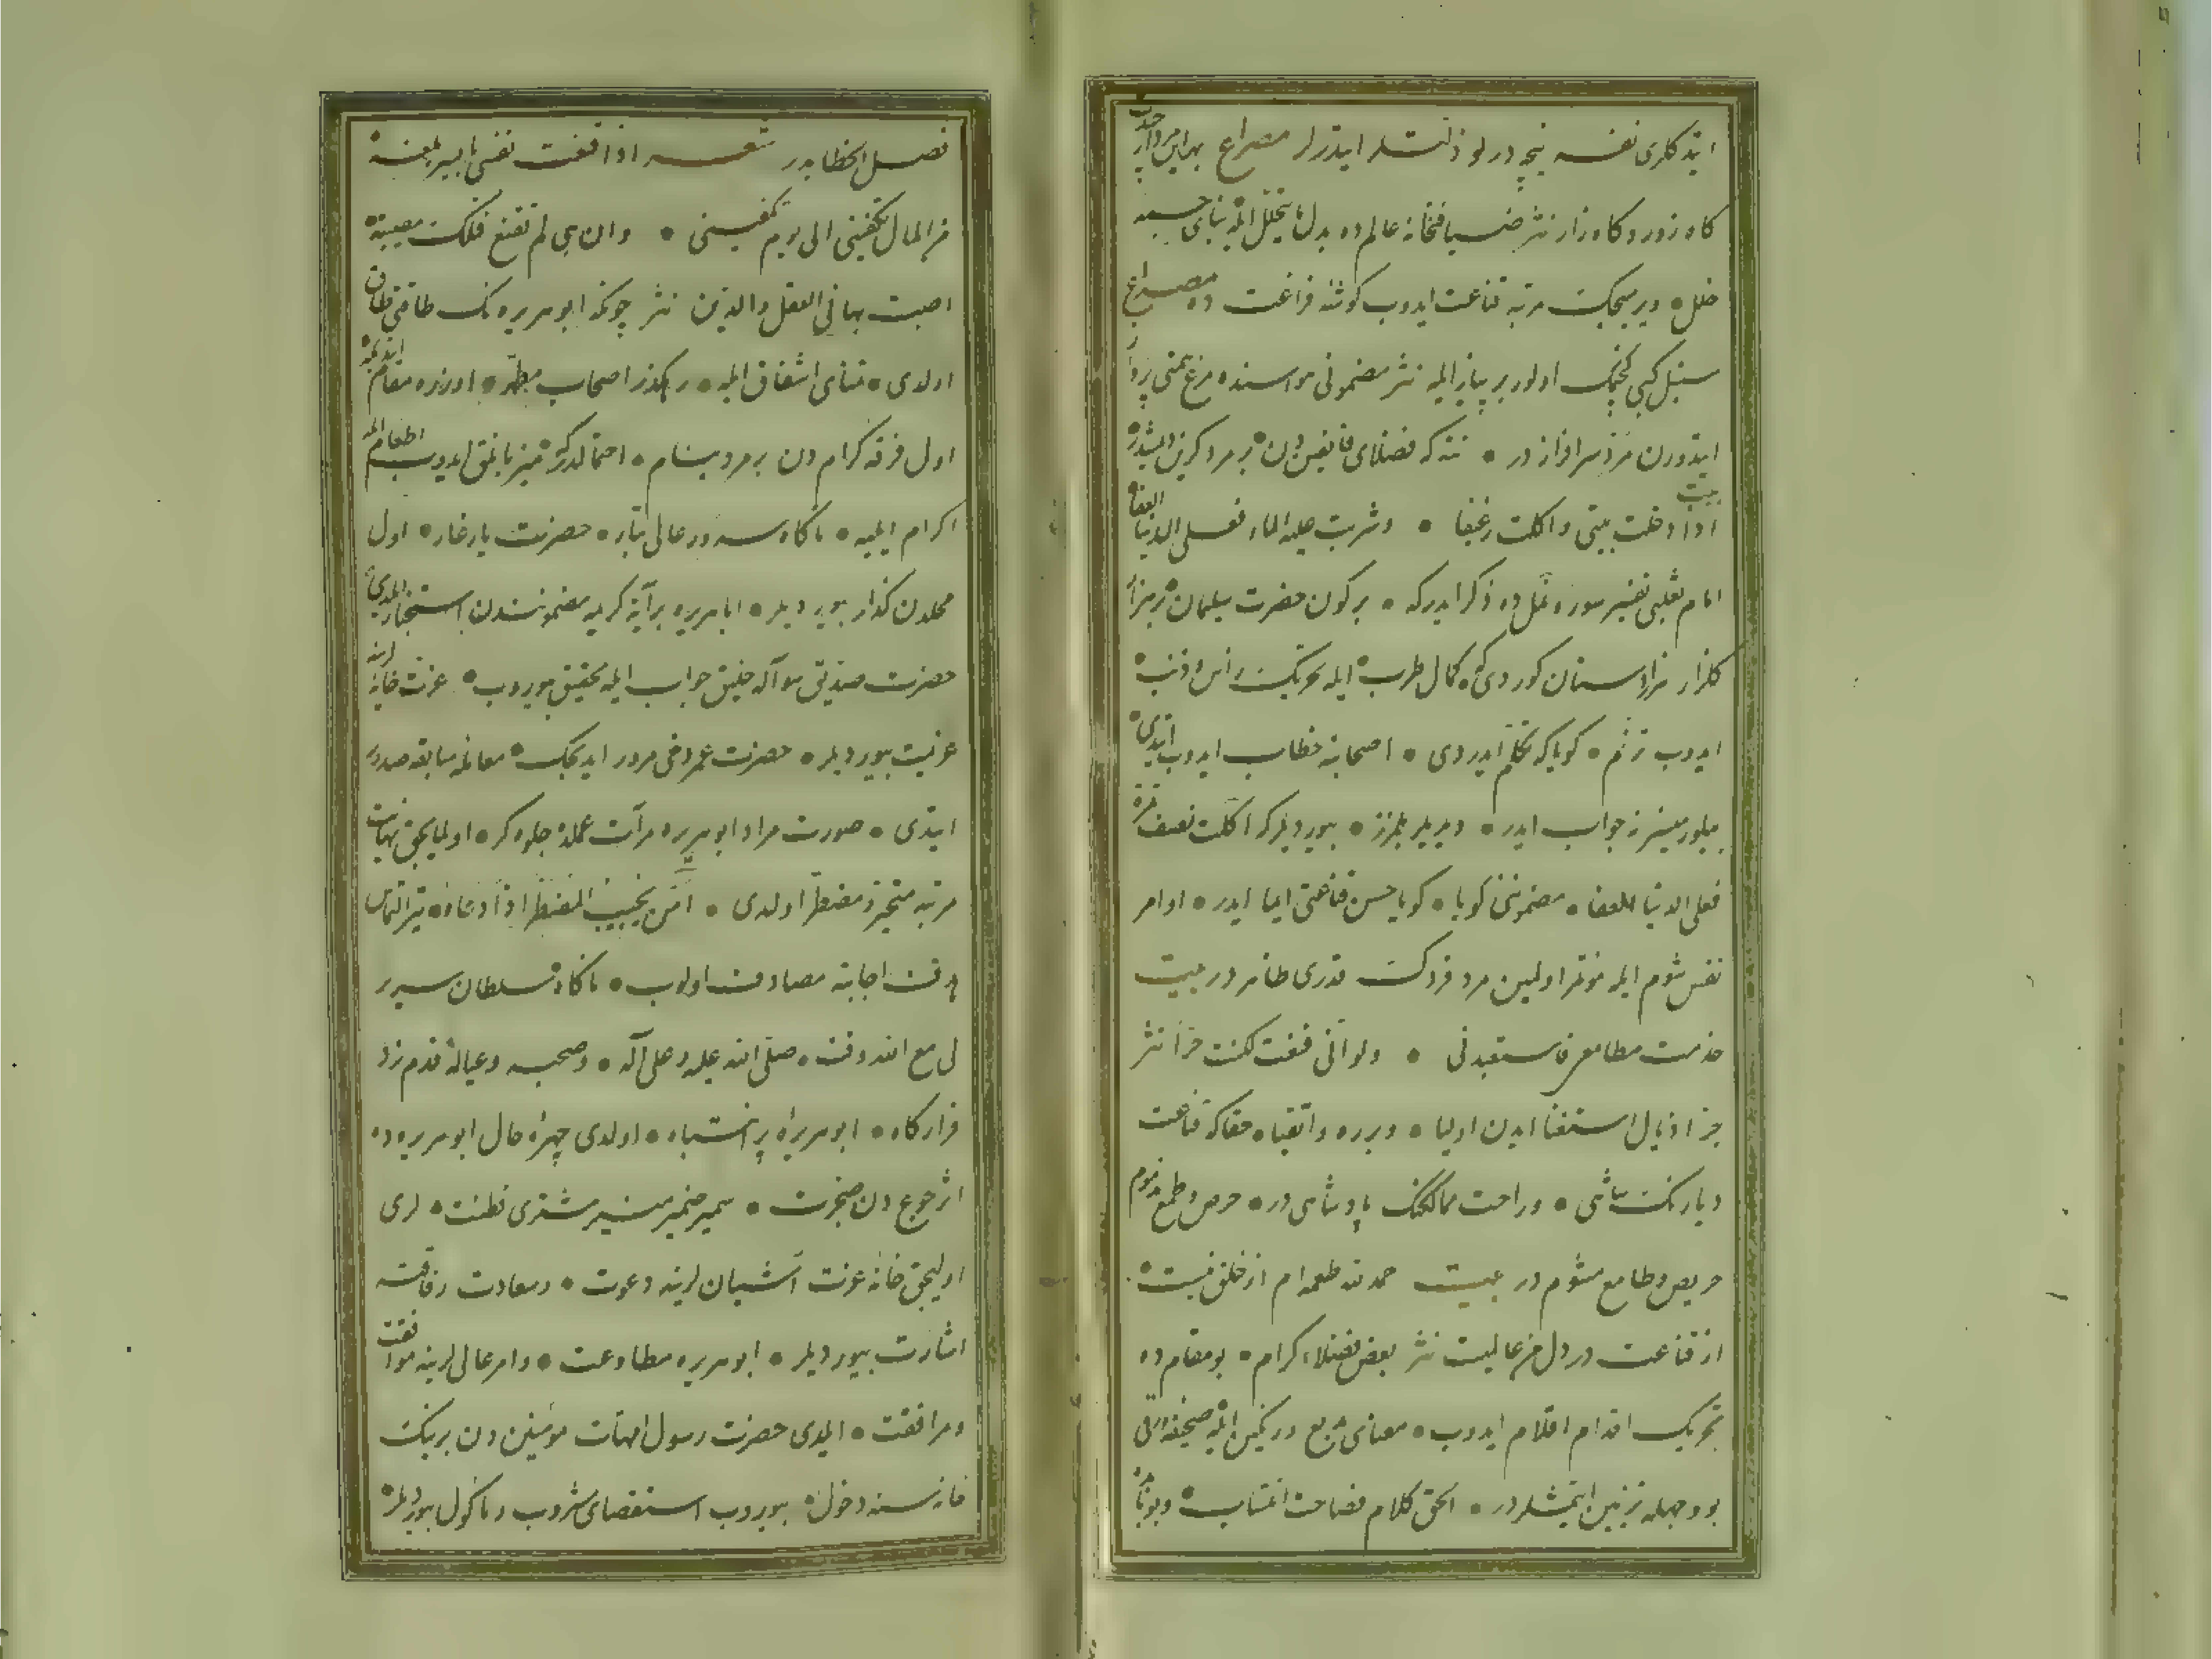 ایتدکلری نفسه نیچه درلو ذلتلر ایدرلر مصراع بهر این مردار
کاه زور و کاه زار نثر ضیافتخانه عالمده بدل ما یتخلل ایله بنای جسمه
خلل ویرمیجک مرتبه قناعت ایدوب کوشه فراغت ده مصراع
سنبل کبی کچنمک اولور بر پیاز ایله نثر مضمونی هواسنده مرغ همتی پرواز
ایتدورن مرد سرافراز در نته که فضلای
بیت
اذا دخلت بیتی و اکلت رغیفا و شربت علیه الماء فعلی الدنیا العفا
امام ثعلبی تفسیر سوره نملده ذکر ایدرکه بر کون حضرت سلیمان بر هزار
کلزار هزارستان کوردی که کمال طرب ایله تحریک راس و ذنب
ایدوب ترنم کویا که تکلم ایدردی اصحابنه خطاب ایدوب ایتدی
بیلورمیسز نه جواب ایدر دیدیلر بلمزز بیوردیلر که اکلت نصف تمرة
فعلی الدنیا العفا مضموننی کویا کویا حسن قناعتی ایما ایدر اوامر
نفس شوم ایله مؤتمر اولمین مرد فردک قدری ظاهر در بیت
خدمت مطامعی فاستعبدنی ولو انی قنعت لکنت حرا نثر
جر اذیال استغنا ایدن اولیا و برره و اتقیا حقا که قناعت
دیارنک شاهی و راحت ممالکنک پادشاهی در حرص و طمع مذموم
حریص و طامع مشوم در بیت حمد لله طعمه ام از خلق نیست
از قناعت در دل من عالمیست نثر بعض فضلاء کرام بو مقامده
تحریک اقدام اقلام ایدوب معنای مربع در رنکین ایله صحیفه اوراقی
بو وجهله تزیین ایتمشلردر الحق کلام فصاحت انتساب
فصل الخطابدر شعر اذا قنعت نفسی بایسر بلغة
من المال تکفینی الی یوم تکفینی وان هی لم تقنع فتلک مصیبة
اصبت بها فی العقل والدین نثر چونکه ابو هریره نک طاقتی طاق
اولدی منتهای اشفاق ایله رهکذر اصحاب مطهر اوزره مقام ایتدی
اول فرقه کرام دن بر مرد بنام احتمالدرکه میزبانلق ایدوب اطعام ایله
اکرام ایلیه ناکاه سرور عالی تبار حضرت یار غار اول
محلدن کذار بیوردیلر ابا هریره بر آیه کریمه مضموننندن استخبار ایلدی
حضرت صدیق سؤاله خلیق جواب ایله تحقیق بیوروب عزت خانه لرینه
عزیمت بیوردیلر حضرت عمر دخی مرور ایدیجک معامله سابقه صدور
ایتدی صورت مراد ابو هریره مرآت عملده جلوه کر اولمایجق نهایت
مرتبه متحیر و مضطر اولدی امن یجیب المضطر اذا دعاه تیر التماس
هدف اجابته مصادف اولوب ناکاه سلطان سریر
لی مع الله وقت صلی الله علیه وعلی آله وصحبه وعیاله قدم زد
قرارکاه ابو هریره پر انتباه اولدی چهره حال ابو هریره ده
اثر جوع دن ضجرت سمیر ضمیر منیر مشتری فطنت لری
اولیجق خانه عزت آشیان لرینه دعوت و سعادت رفاقته
اشارت بیوردیلر ابو هریره مطاوعت و امر عالی لرینه موافقت
و مرافقت ایلدی حضرت رسول امهات مؤمنین دن برینک
خانه سنه دخول بیوروب استقصای مشروب و ماکول بیوردیلر